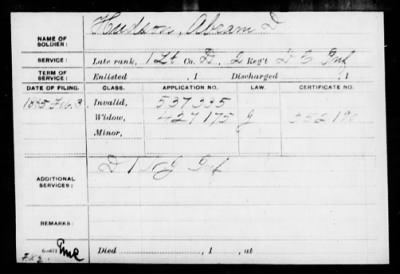 NAME OF SOLDIER: Hudson, Abram D
SERVICE: Late rank, 1 Lt Co. D, 2 Reg't D C Inf
TERM OF SERVICE: Enlisted , 1 Discharged , 1
DATE OF FILING. CLASS. APPLICATION NO. LAW. CERTIFICATE NO.
1885 Feb. Invalid, 537335
Widow, 427175 J
Minor,
ADDITIONAL SERVICES: Inf
REMARKS:
Died , 1 , at